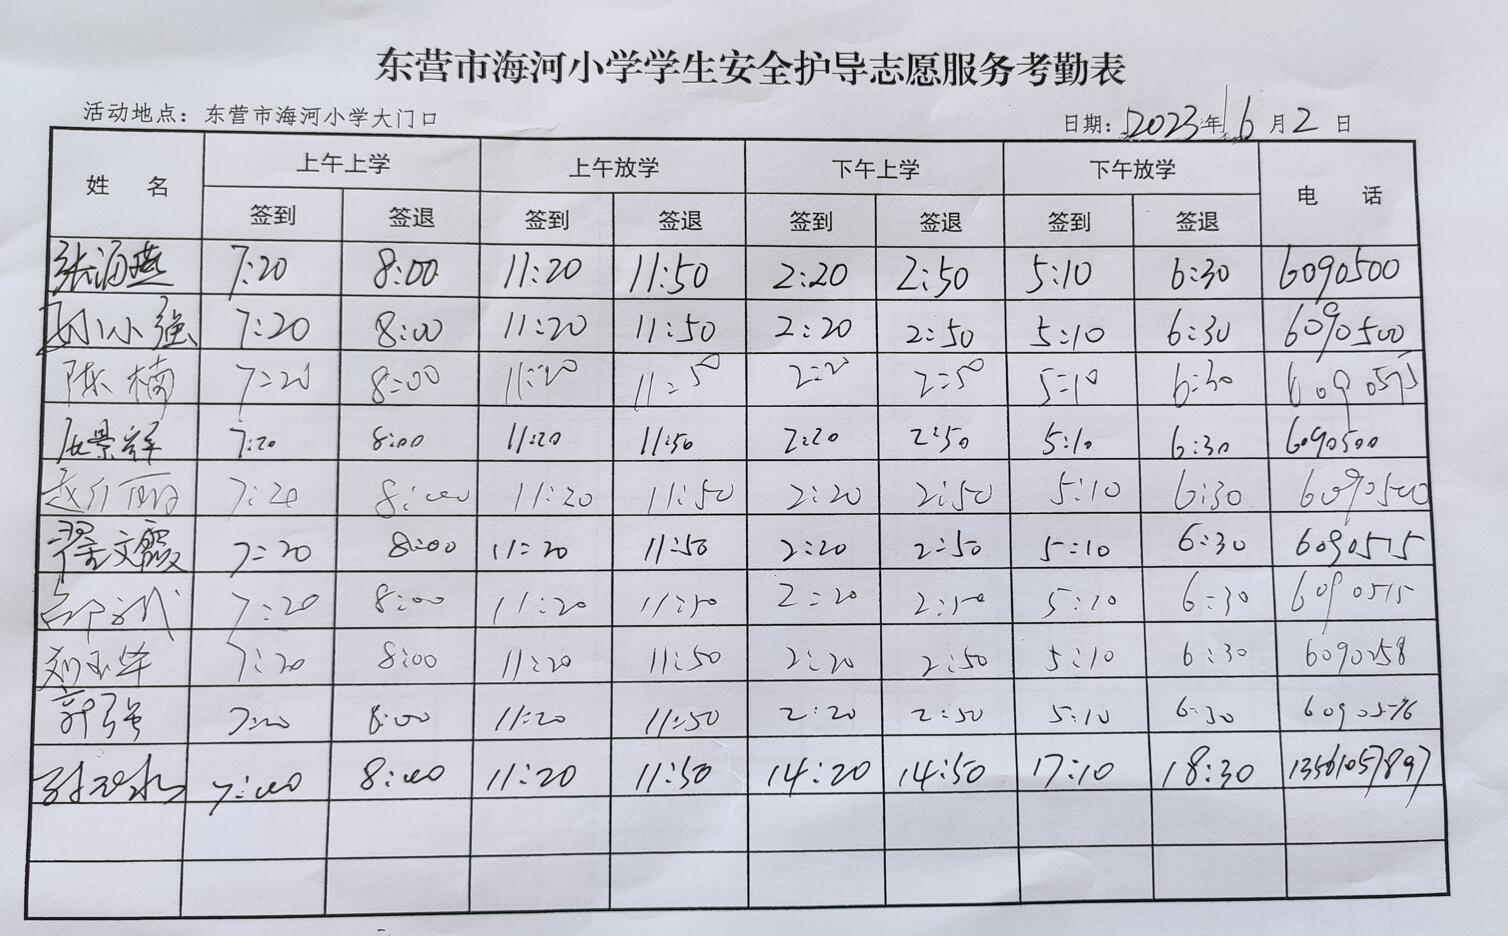 东营市海河小学学生安全护导志愿服务考勤表
活动地点：东营市海河小学大门口 日期：2023年6月2日
姓 名 上午上学 上午放学 下午上学 下午放学 电 话
签到 签退 签到 签退 签到 签退 签到 签退
张海燕 7:20 8:00 11:20 11:50 2:20 2:50 5:10 6:30 6090500
孙小强 7:20 8:00 11:20 11:50 2:20 2:50 5:10 6:30 6090500
陈楠 7:20 8:00 11:20 11:50 2:20 2:50 5:10 6:30 6090575
景祥 7:20 8:00 11:20 11:50 2:20 2:50 5:10 6:30 6090500
7:20 8:00 11:20 11:50 2:20 2:50 5:10 6:30 6090500
翠文霞 7:20 8:00 11:20 11:50 2:20 2:50 5:10 6:30 6090515
7:20 8:00 11:20 11:50 2:20 2:50 5:10 6:30 6090515
刘玉华 7:20 8:00 11:20 11:50 2:20 2:50 5:10 6:30 6090258
郭强 7:20 8:00 11:20 11:50 2:20 2:50 5:10 6:30
7:00 8:00 11:20 11:50 14:20 14:50 17:10 18:30 13561057897